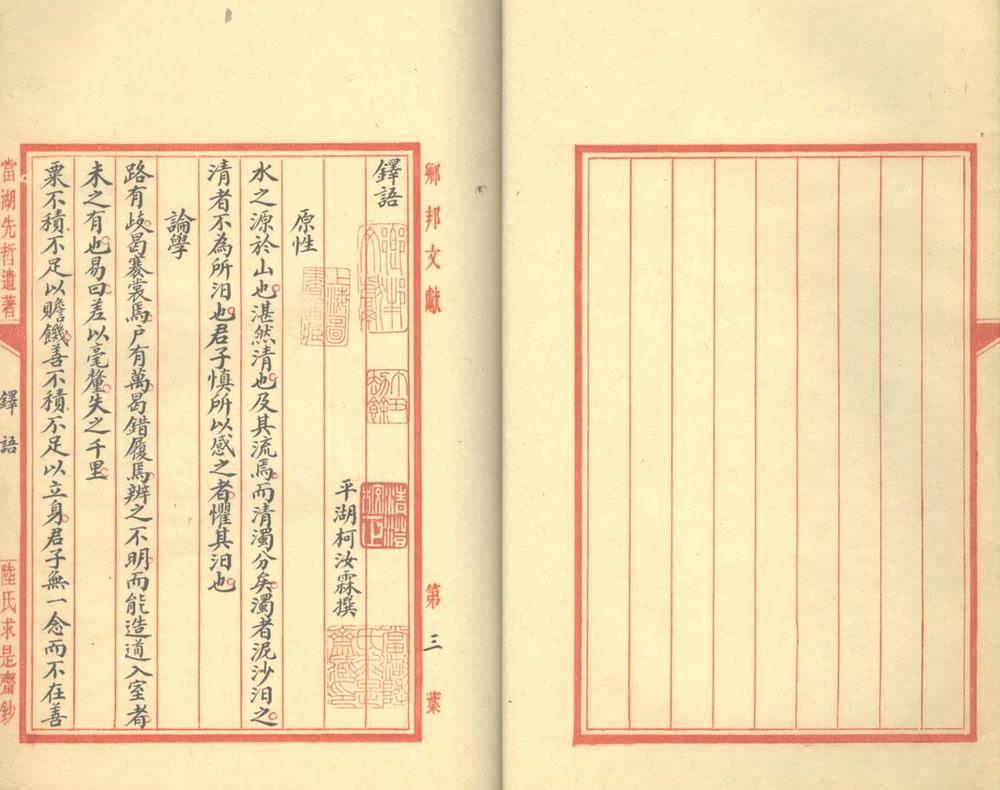 鄉邦文獻
第三葉
鐸語
平湖柯汝霖撰
原性
水之源於山也湛然清也及其流焉而清濁分矣濁者泥沙汩之
清者不為所汩也君子慎所以感之者懼其汩也
論學
路有歧曷褰裳焉戶有萬曷錯履焉辨之不明而能造道入室者
未之有也易曰差以毫釐失之千里
粟不積不足以贍饑善不積不足以立身君子無一念而不在善
當湖先哲遺著
鐸語
陸氏求是齋鈔
上海圖書館